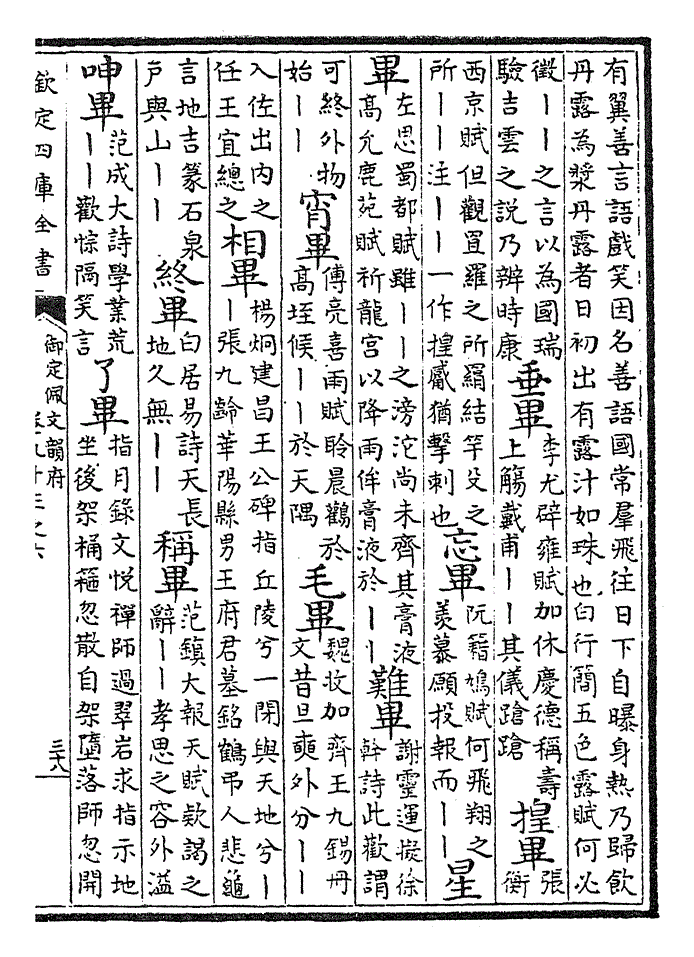 有翼善言語戲笑因名善語國常羣飛往日下自曝身熱乃歸飲
丹露為漿丹露者日初出有露汁如珠也白行簡五色露賦何必
徵丨丨之言以為國瑞
驗吉雲之説乃辨時康
垂畢
李尤辟雍賦加休慶德稱壽
上觴戴甫丨丨其儀蹌蹌
揘畢
張
衡
西京賦但觀罝羅之所羂結竿殳之
所丨丨注丨丨一作揘觱猶擊刺也
忘畢
阮籍鳩賦何飛翔之
羨慕願投報而丨丨
星
畢
左思蜀都賦雖丨丨之滂沱尚未齊其膏液
高允鹿苑賦祈龍宮以降雨侔膏液於丨丨
難畢
謝靈運擬徐
幹詩此歡謂
可終外物
始丨丨
宵畢
傅亮喜雨賦聆晨鸛於
高垤候丨丨於天隅
毛畢
魏收加齊王九錫册
文昔旦奭外分丨丨
入佐出内之
任王宜總之
相畢
楊炯建昌王公碑指丘陵兮一閉與天地兮丨
丨張九齡華陽縣男王府君墓銘鶴弔人悲龜
言地吉篆石泉
戸與山丨丨
終畢
白居易詩天長
地久無丨丨
稱畢
范鎮大報天賦欵謁之
辭丨丨孝思之容外溢
呻畢
范成大詩學業荒
丨丨歡悰隔笑言
了畢
指月錄文悦禪師過翠岩求指示地
坐後架桶箍忽散自架墮落師忽開
欽定四庫全書
御定佩文韻府
卷九十三之六
三十八